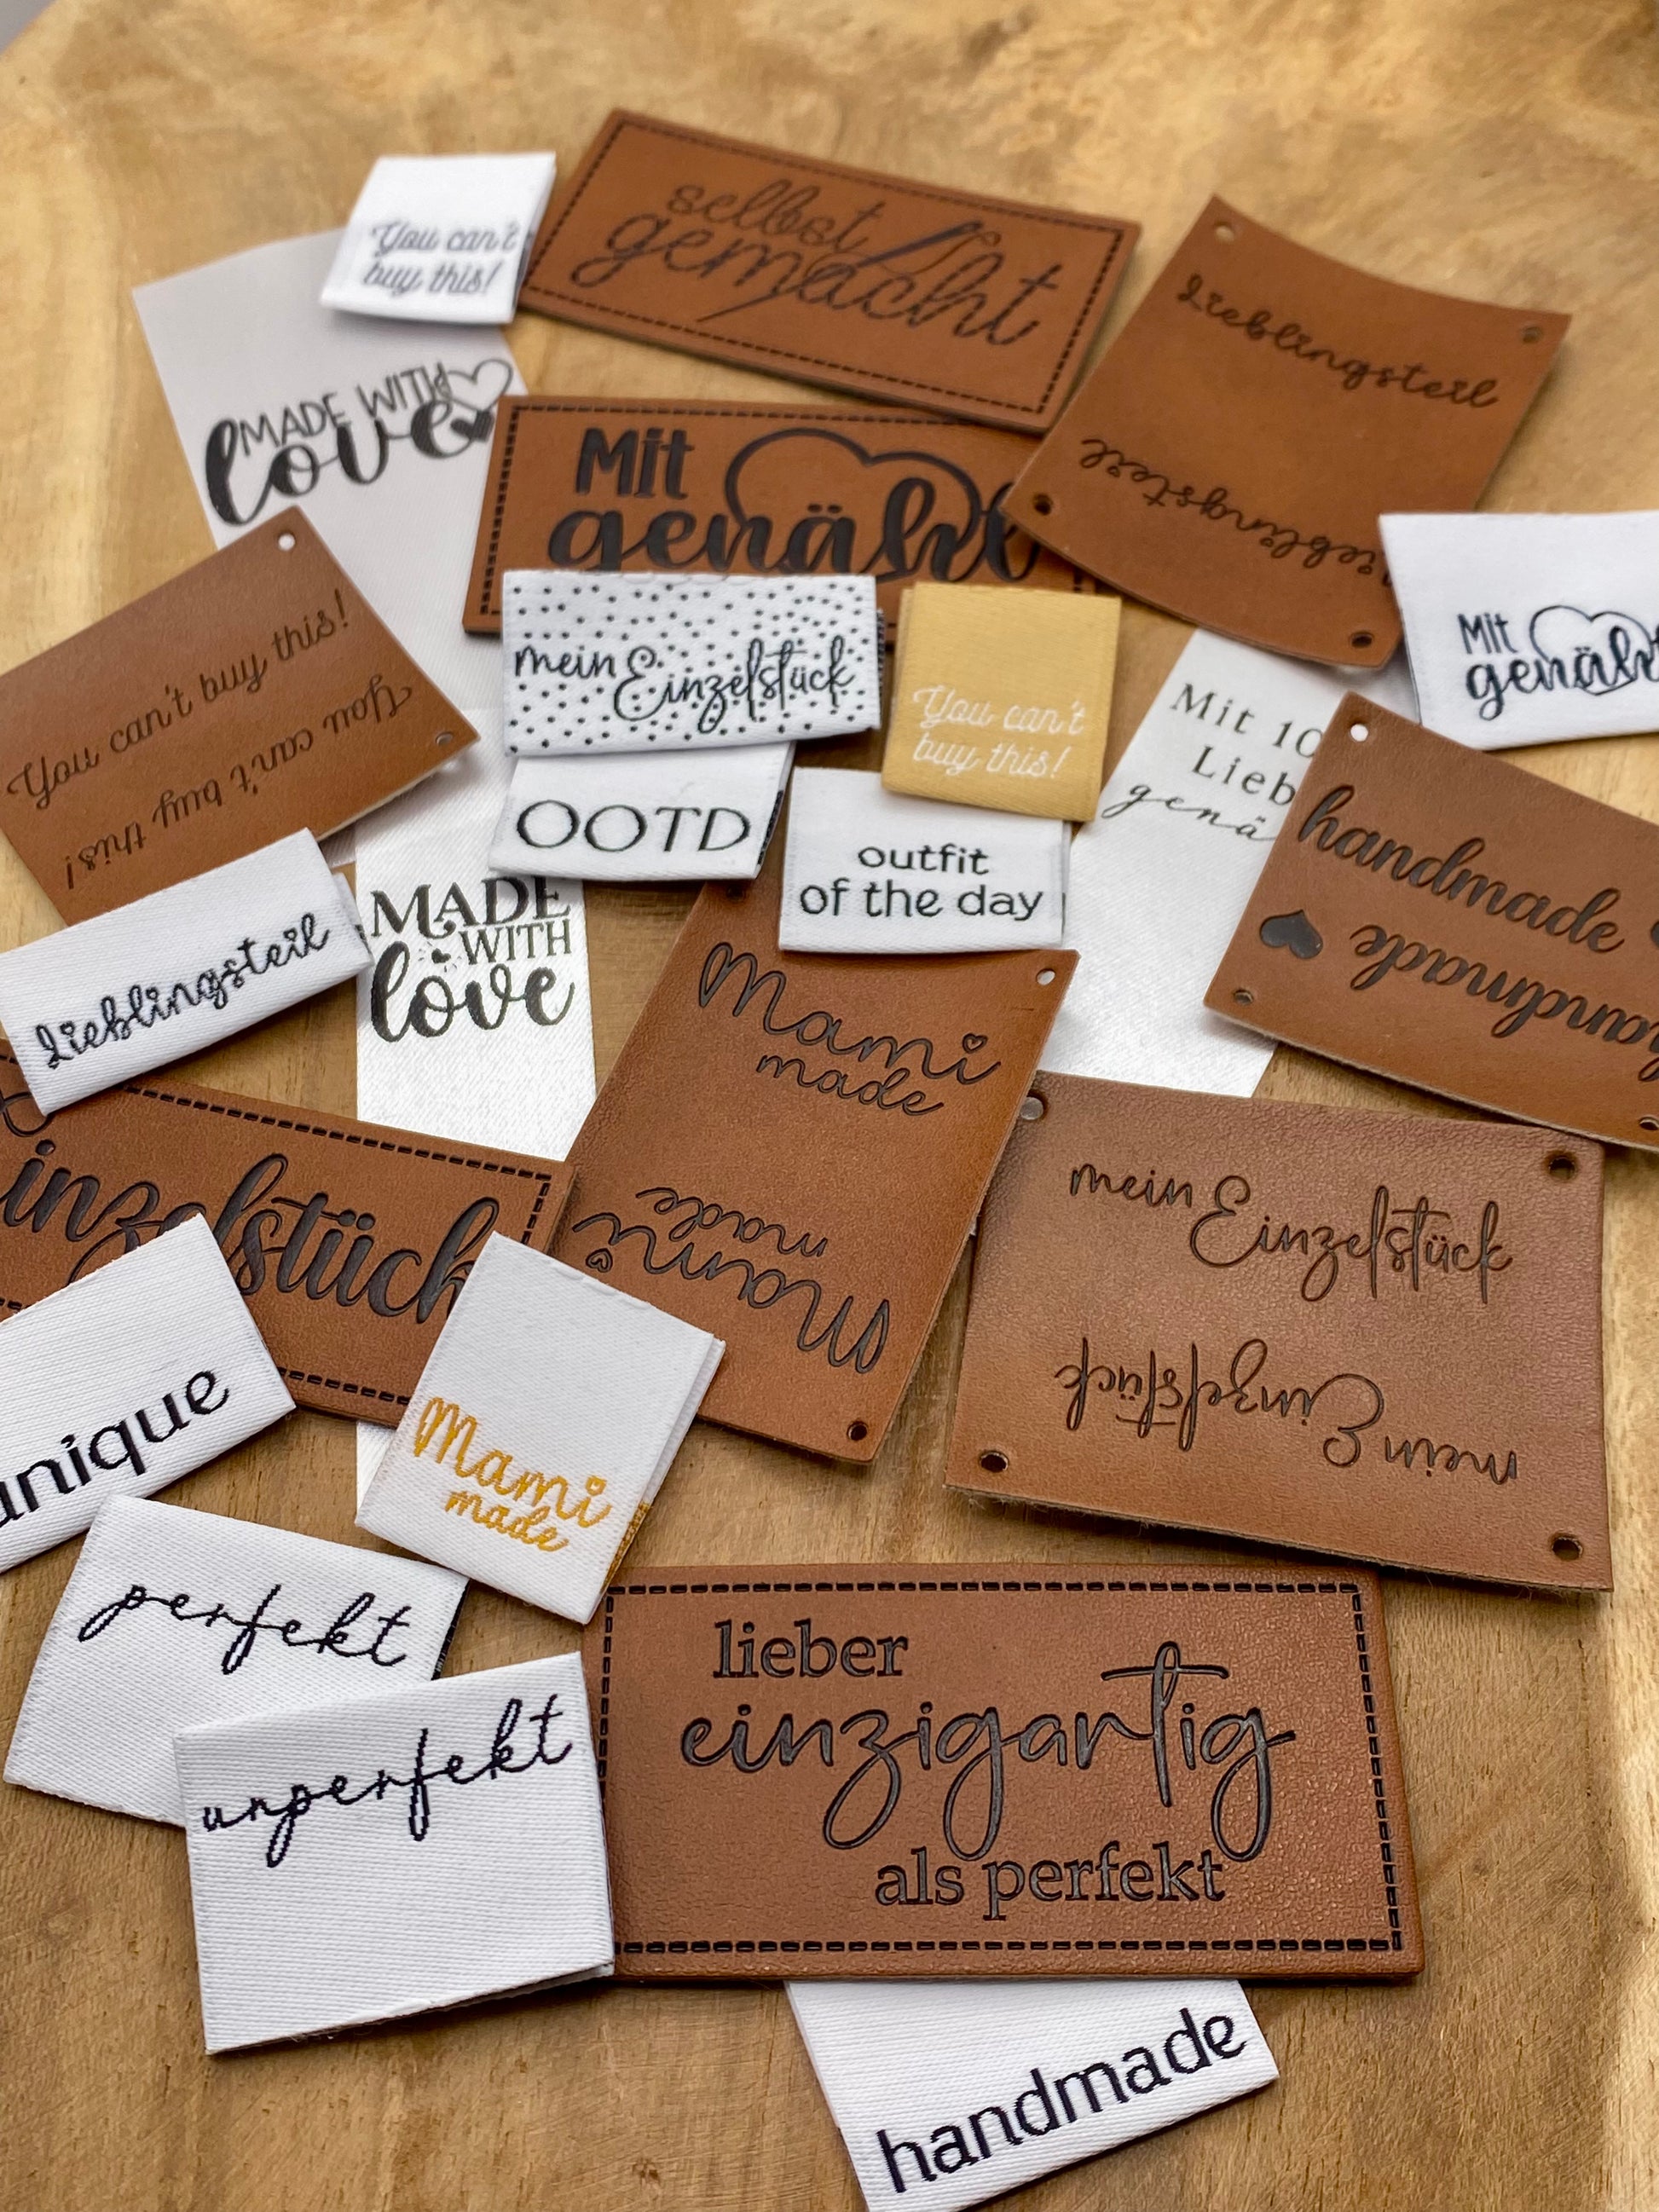 You can't
buy this!
selbst
gemacht
MADE WITH
love
Lieblingsteil
Lieblingsteil
Mit
genäht
Mit
genäht
You can't buy this!
You can't buy this!
mein Einzelstück
You can't
buy this!
OOTD
outfit
of the day
Mit 10
Lieb
genä
handmade
handmade
Lieblingsteil
MADE
WITH
love
Mami
made
Mami
made
mein Einzelstück
mein Einzelstück
inzelstück
unique
Mami
made
perfekt
unperfekt
lieber
einzigartig
als perfekt
handmade